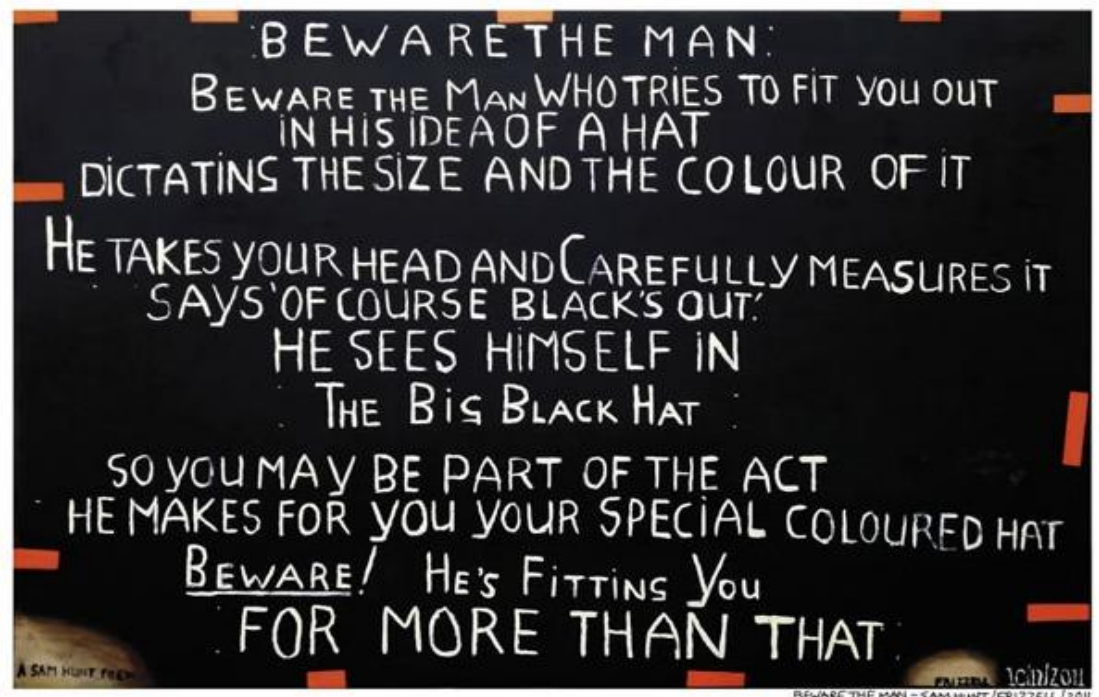 BEWARE THE MAN:
BEWARE THE MAN WHO TRIES TO FIT YOU OUT
IN HIS IDEA OF A HAT
DICTATING THE SIZE AND THE COLOUR OF IT
HE TAKES YOUR HEAD AND CAREFULLY MEASURES IT
SAYS 'OF COURSE BLACK'S OUT.'
HE SEES HIMSELF IN
THE BIG BLACK HAT
SO YOU MAY BE PART OF THE ACT
HE MAKES FOR YOU YOUR SPECIAL COLOURED HAT
BEWARE! HE'S FITTING YOU
FOR MORE THAN THAT
A SAM HUNT POEM
FRIZZELL 10/12/2011
BEWARE THE MAN - SAM HUNT/FRIZZELL/2011